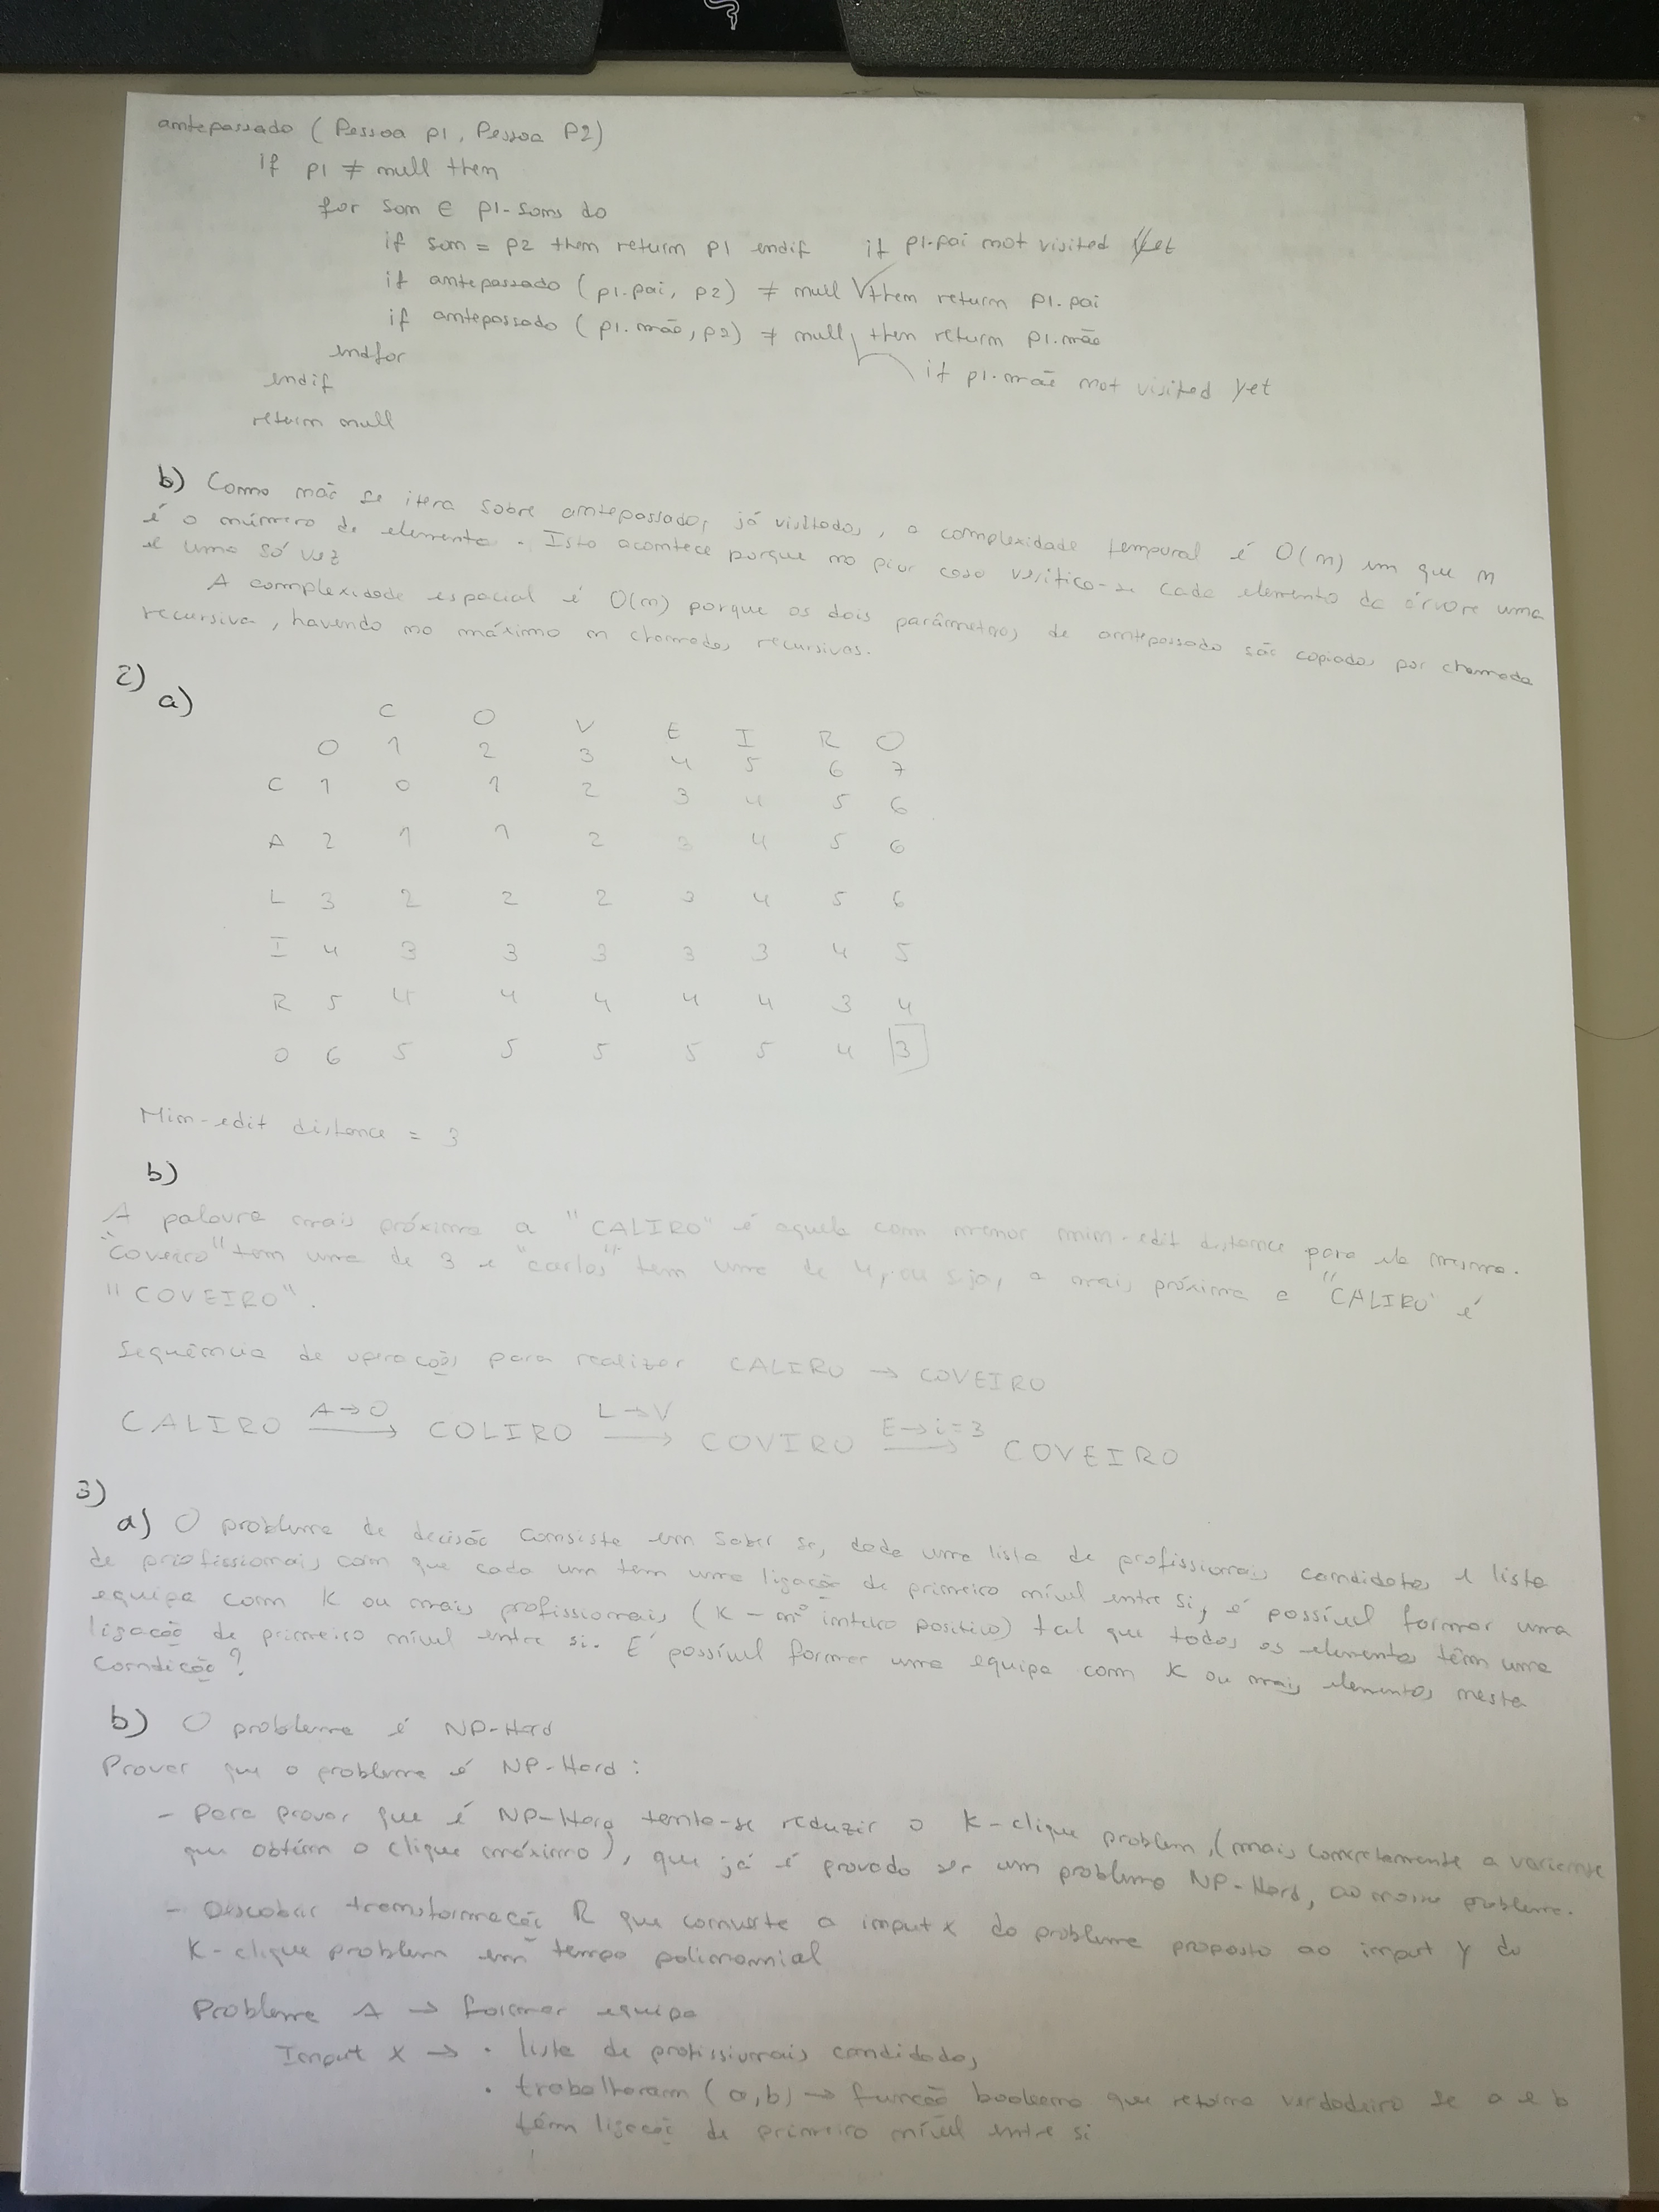 antepassado ( Pessoa p1, Pessoa P2)
if p1 ≠ null then
for son ∈ p1-sons do
if son = p2 then return p1 endif if p1.pai not visited yet
if antepassado (p1.pai, p2) ≠ null then return p1.pai
if antepassado (p1.mãe, p2) ≠ null, then return p1.mãe
endfor
if p1.mãe not visited yet
endif
return null
b) Como não se itera sobre antepassados já visitados, a complexidade temporal é O(n) em que n
é o número de elementos. Isto acontece porque no pior caso verifica-se cada elemento da árvore uma
e uma só vez
A complexidade espacial é O(n) porque os dois parâmetros de antepassado são copiados por chamada
recursiva, havendo no máximo n chamadas recursivas.
2)
a)
C O V E I R O
0 1 2 3 4 5 6 7
C 1 0 1 2 3 4 5 6
A 2 1 1 2 3 4 5 6
L 3 2 2 2 3 4 5 6
I 4 3 3 3 3 3 4 5
R 5 4 4 4 4 4 3 4
O 6 5 5 5 5 5 4 3
Min-edit distance = 3
b)
A palavra mais próxima a "CALIRO" é aquela com menor min-edit distance para ela mesma.
"Coveiro" tem uma de 3 e "carlos" tem uma de 4, ou seja, a mais próxima a "CALIRO" é
"COVEIRO".
Sequência de operações para realizar CALIRO → COVEIRO
CALIRO A→O COLIRO L→V COVIRO E→i=3 COVEIRO
3)
a) O problema de decisão consiste em saber se, dada uma lista de profissionais candidatos e lista
de profissionais com que cada um tem uma ligação de primeiro nível entre si, é possível formar uma
equipa com K ou mais profissionais (K - nº inteiro positivo) tal que todos os elementos têm uma
ligação de primeiro nível entre si. É possível formar uma equipa com K ou mais elementos nesta
condição?
b) O problema é NP-Hard
Provar que o problema é NP-Hard:
- Para provar que é NP-Hard tenta-se reduzir o K-clique problem, (mais concretamente a variante
que obtém o clique máximo), que já é provado ser um problema NP-Hard, ao nosso problema.
- Descobrir transformação R que converte o input x do problema proposto ao input y do
K-clique problem em tempo polinomial
Problema A → formar equipa
Input X → • lista de profissionais candidatos
• trabalharam (a,b) → função booleana que retorna verdadeiro se a e b
têm ligação de primeiro nível entre si